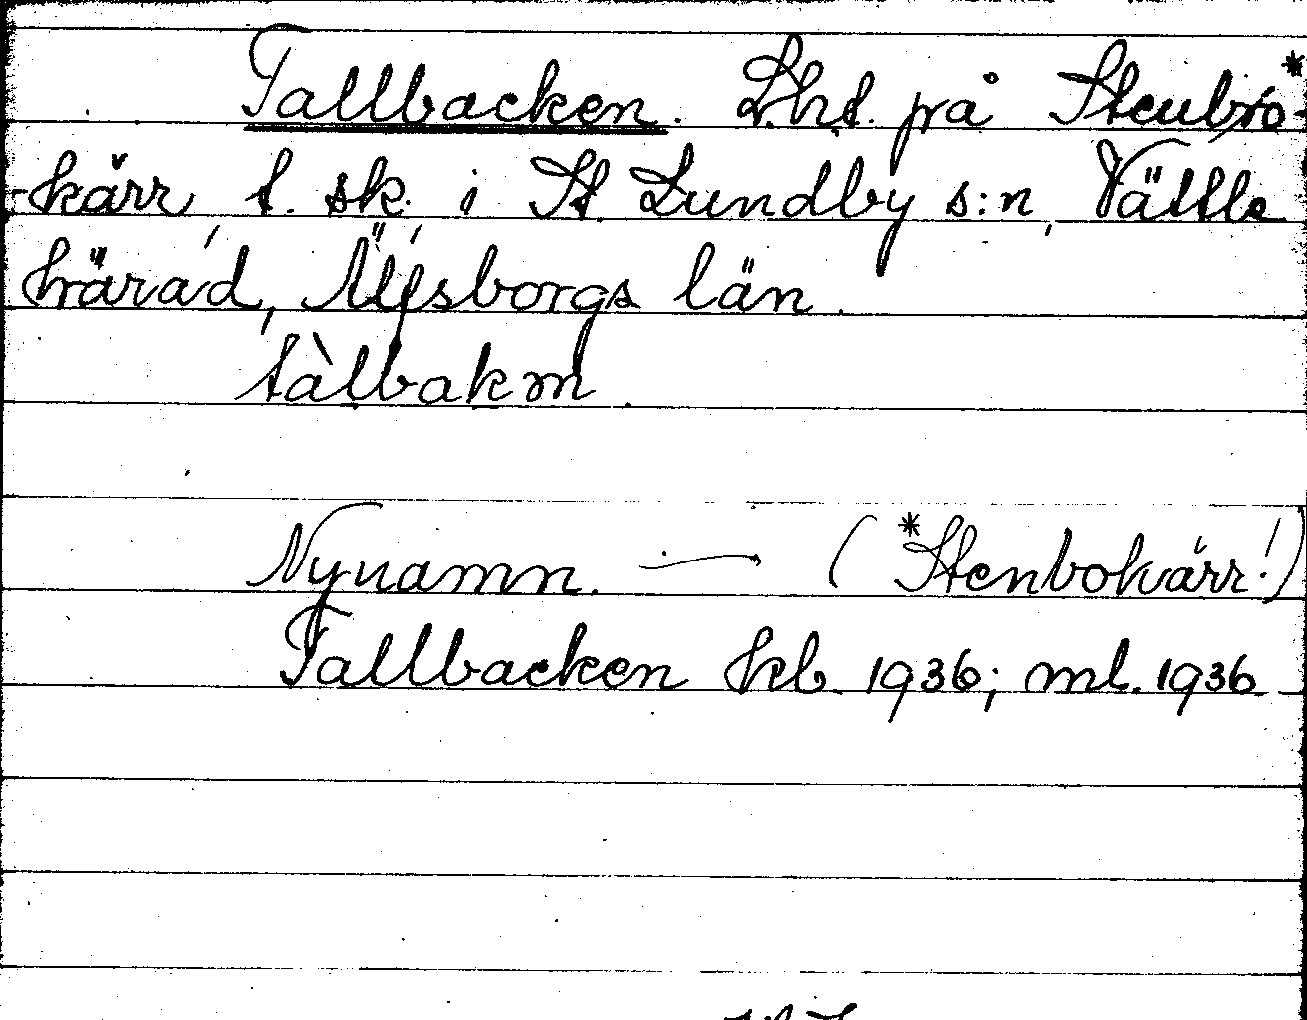 Tallbacken. Lht. på Stenbro-*
-kärr, t. sk. i St. Lundby s:n, Vättle
härad, Älfsborgs län.
tàlbakm.
Nynamn. → (*Stenbokärr!)
Tallbacken kb. 1936; ml. 1936